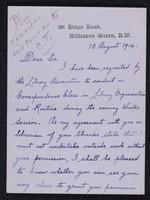 10 August 1914.
Dear Sir
I have been requested by
the Library Association to conduct a
Correspondence Class in Library Organisation
and Routine during the coming Winter
Session. As my agreement with you as
Librarian of your libraries states that I
must not undertake outside work without
your permission, I shall be pleased
to know whether you can see your
way clear to grant your permission